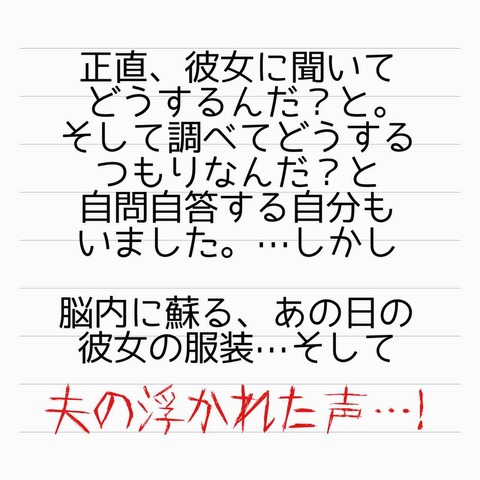 正直、彼女に聞いて
どうするんだ？と。
そして調べてどうする
つもりなんだ？と
自問自答する自分も
いました。…しかし
脳内に蘇る、あの日の
彼女の服装…そして
夫の浮かれた声…!